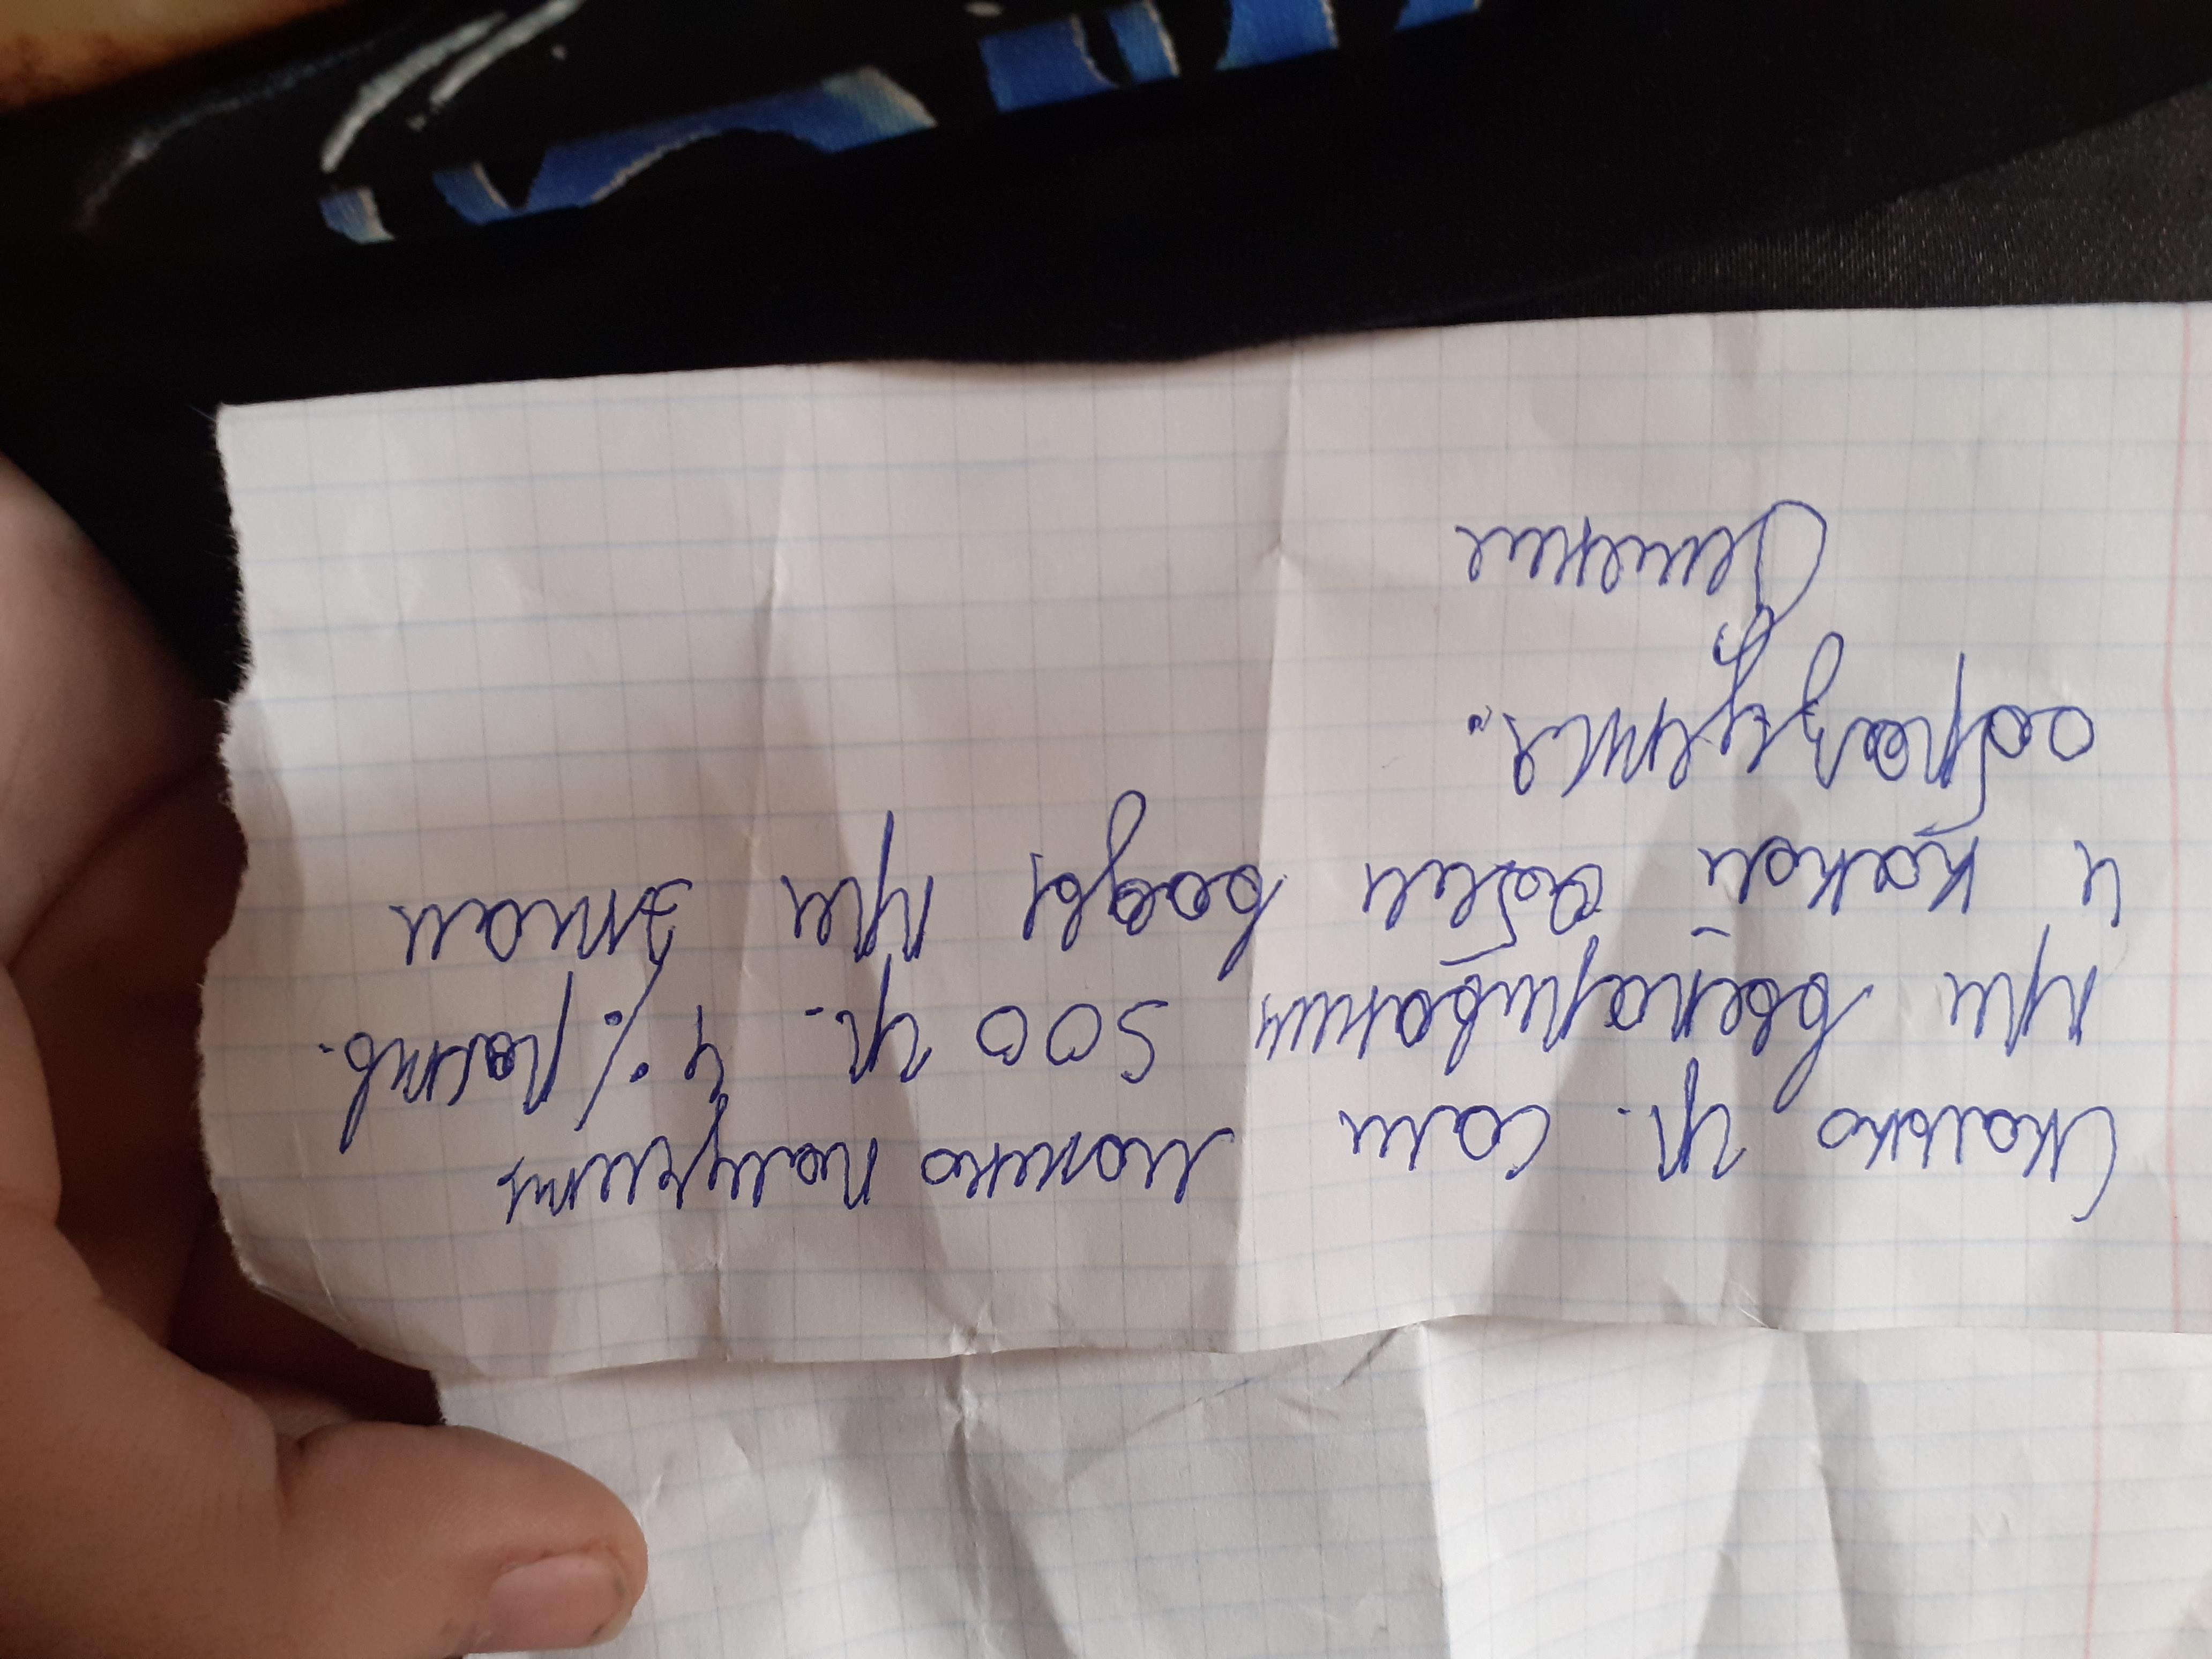 Сколько гр. соли можно получить
при выпаривании 500 гр. 4% раств.
и какой обем воды при этом
образуется.
Решение